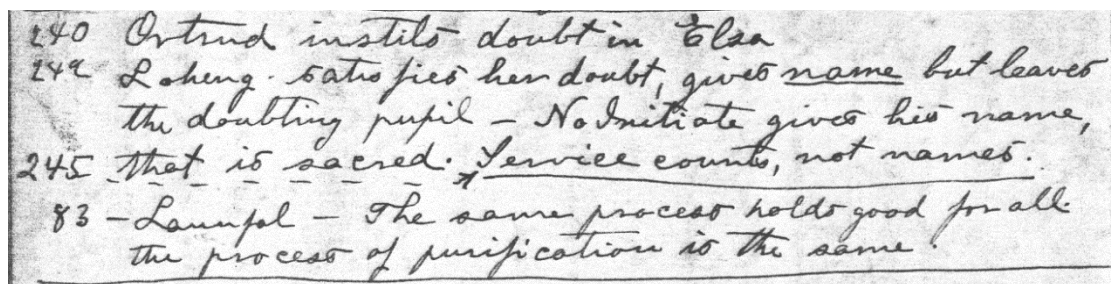 240 Ortrud instils doubt in Elsa
242 Loheng. satisfies her doubt, gives name but leaves
the doubting pupil – No Initiate gives his name,
245 that is sacred. Service counts, not names.
83 – Launfal – The same process holds good for all.
the process of purification is the same.